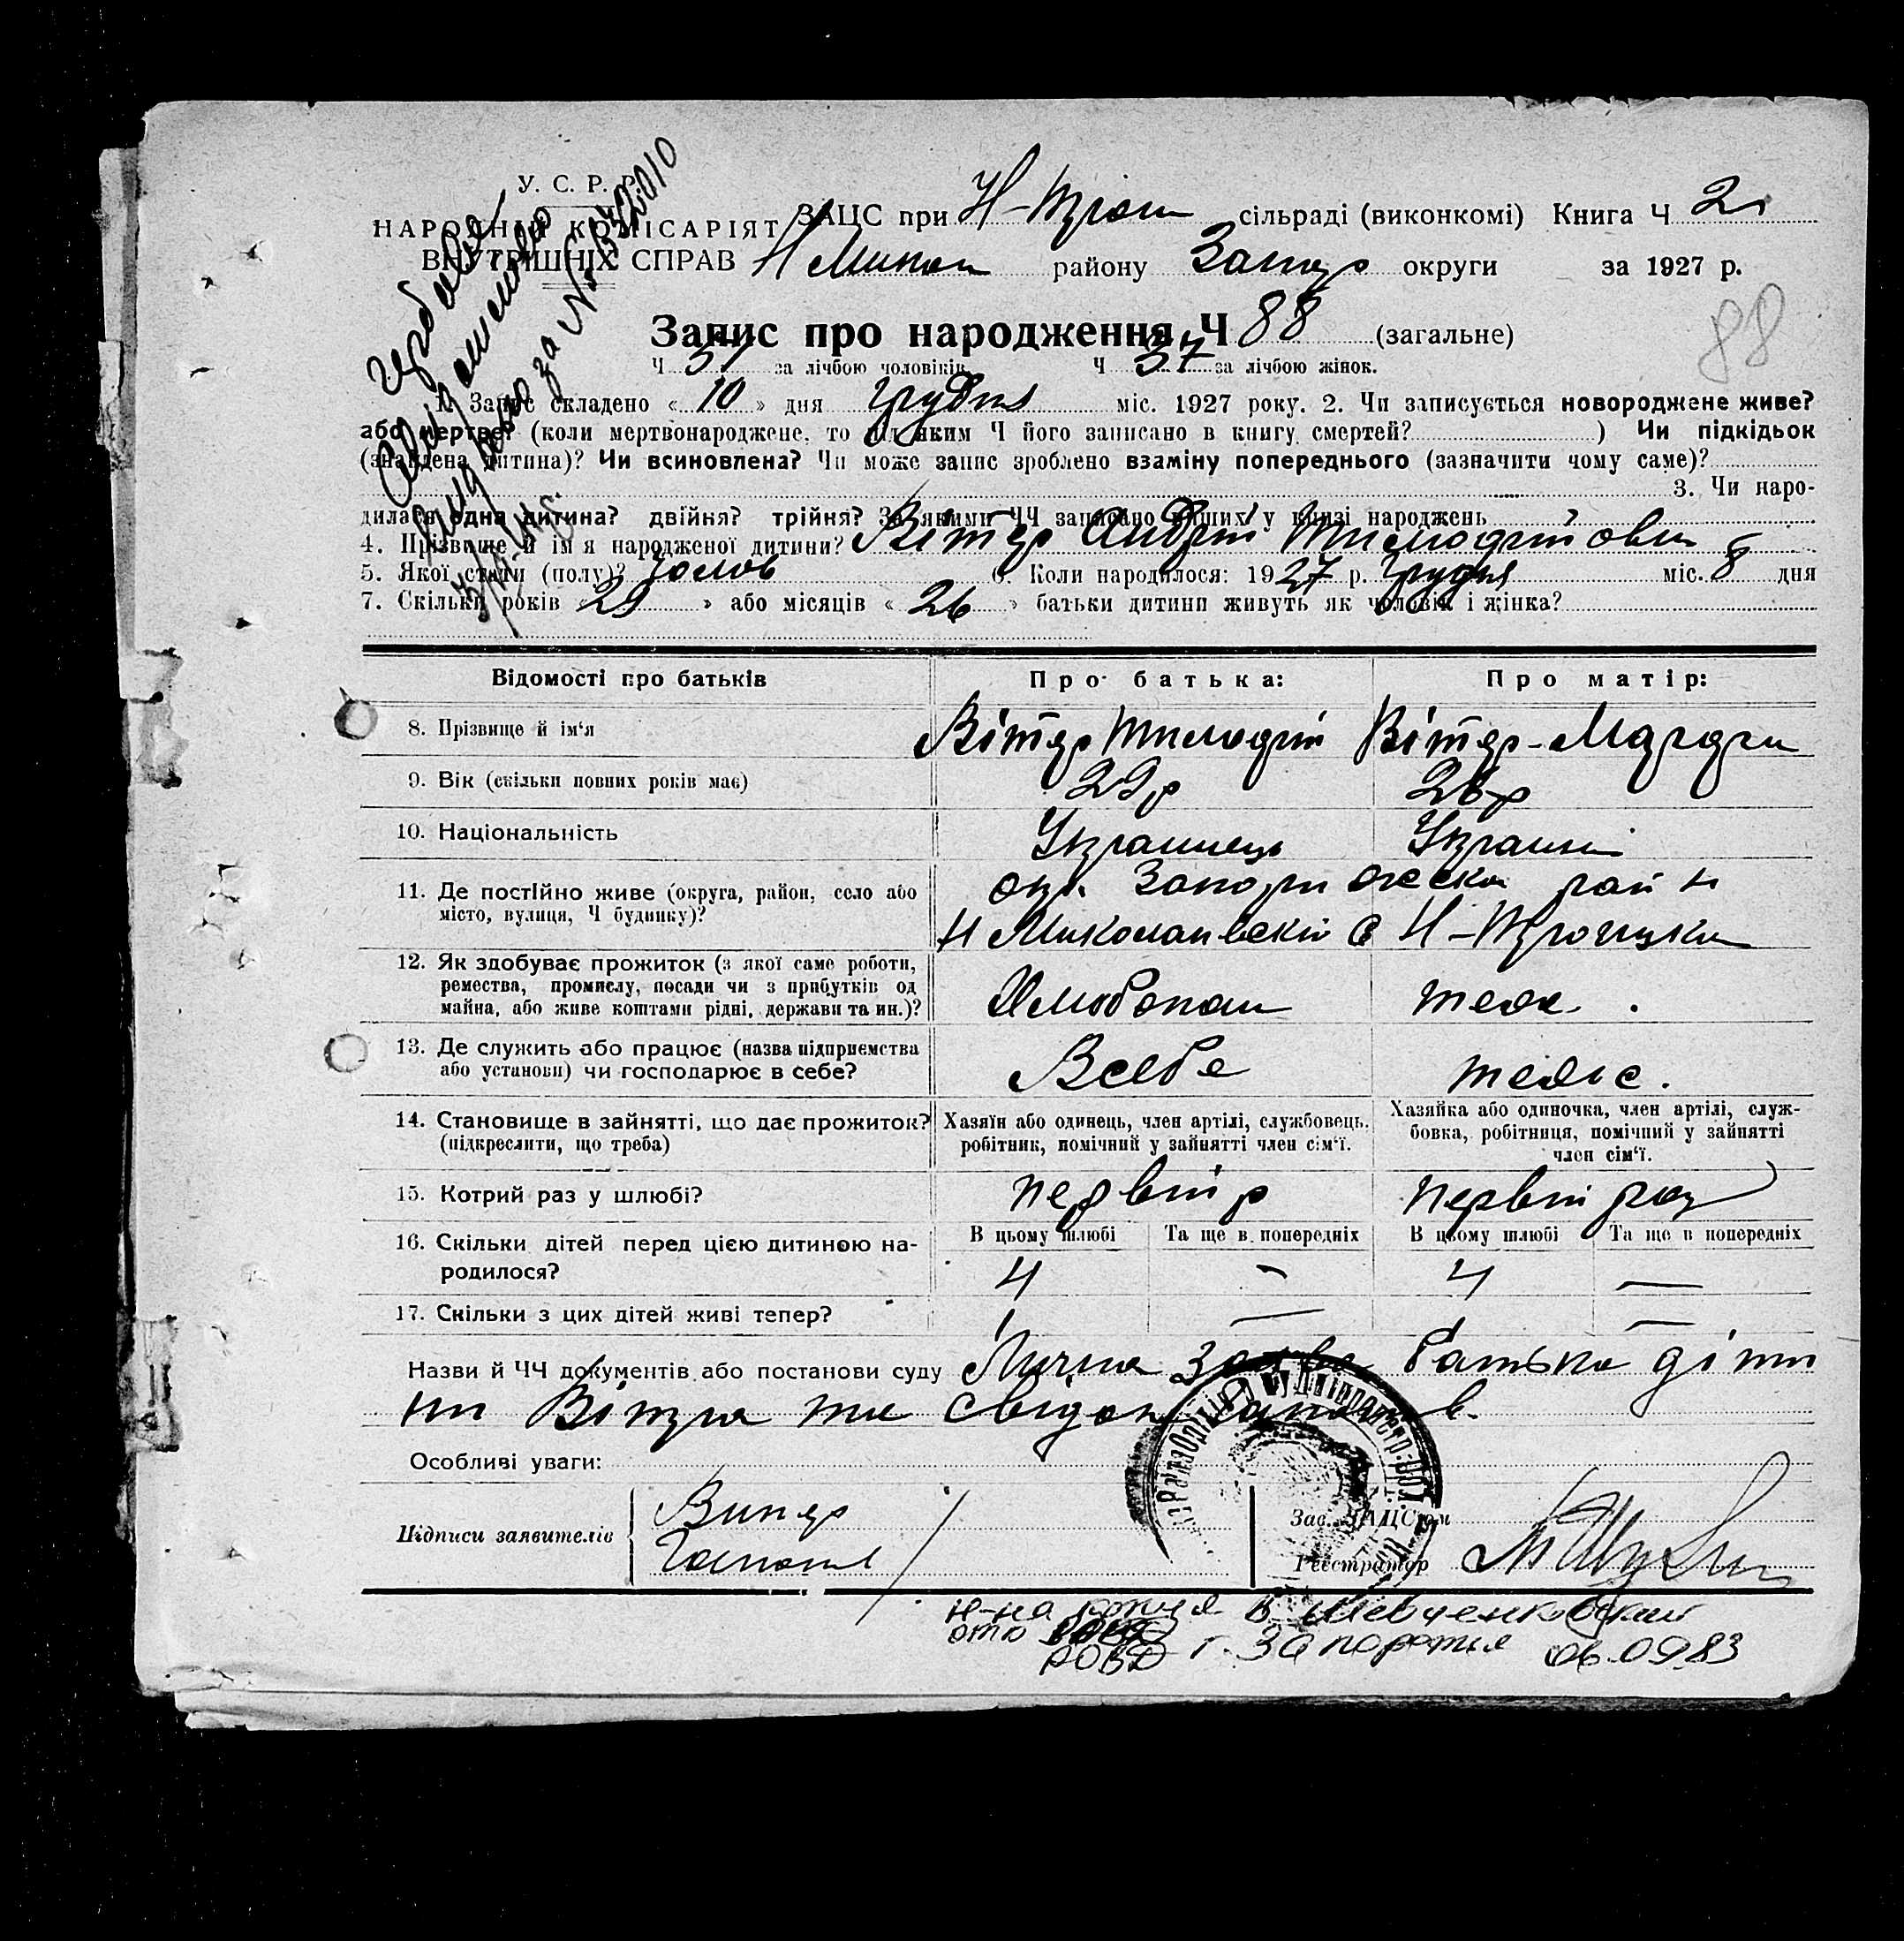 У. С. Р. Р.
НАРОДНІЙ КОМІСАРІЯТ
ВНУТРІШНІХ СПРАВ
ЗАЦС при Н-Троп сільраді (виконкомі) Книга Ч 2
Н Микол району Запор округи за 1927 р.
за №
Запис про народження Ч 88 (загальне)
88
Ч 51 за лічбою чоловіків Ч 37 за лічбою жінок.
1. Запис складено « 10 » дня Грудня міс. 1927 року. 2. Чи записується новороджене живе?
або мертве? (коли мертвонароджене, то під яким Ч його записано в книгу смертей? ) Чи підкідьок
(знайдена дитина)? Чи всиновлена? Чи може запис зроблено взаміну попереднього (зазначити чому саме)?
3. Чи наро-
дилася одна дитина? двійня? трійня? За якими ЧЧ записано инших у книзі народжень
4. Прізвище й ім'я народженої дитини? Вітер Андрій
5. Якої стати (полу)? Чолов 6. Коли народилося: 1927 р. Грудня міс. 8 дня
7. Скільки років « 29 » або місяців « 26 » батьки дитини живуть як чоловік і жінка?
Відомості про батьків Про батька: Про матір:
8. Прізвище й ім'я Вітер Вітер
9. Вік (скільки повних років має) 29р 26р
10. Національність Українець Українкі
11. Де постійно живе (округа, район, село або окр. Запоріжска рай Н
місто, вулиця, Ч будинку)? Н Миколаївскій С Н-Троицка
12. Як здобуває прожиток (з якої саме роботи,
ремества, промислу, посади чи з прибутків од
майна, або живе коштами рідні, держави та ин.)? Хлібопаш теж.
13. Де служить або працює (назва підприємства
або установи) чи господарює в себе? Всебе теж.
14. Становище в зайнятті, що дає прожиток? Хазяїн або одинець, член артілі, службовець, Хазяйка або одиночка, член артілі, служ-
(підкреслити, що треба) робітник, помічний у зайнятті член сім'ї. бовка, робітниця, помічний у зайнятті
член сім'ї.
15. Котрий раз у шлюбі? первій р первій раз
16. Скільки дітей перед цією дитиною на- В цьому шлюбі Та ще в попередніх В цьому шлюбі Та ще в попередніх
родилося? 4 — 4 —
17. Скільки з цих дітей живі тепер? 1 — 1 —
Назви й ЧЧ документів або постанови суду Лична заява батька діти
ни Вітра та свідок
Особливі уваги:
Підписи заявителів
Зав. ЗАЦС'ом
Реєстратор
Шевченковский
РОВД г. Запорожья 06.09.83